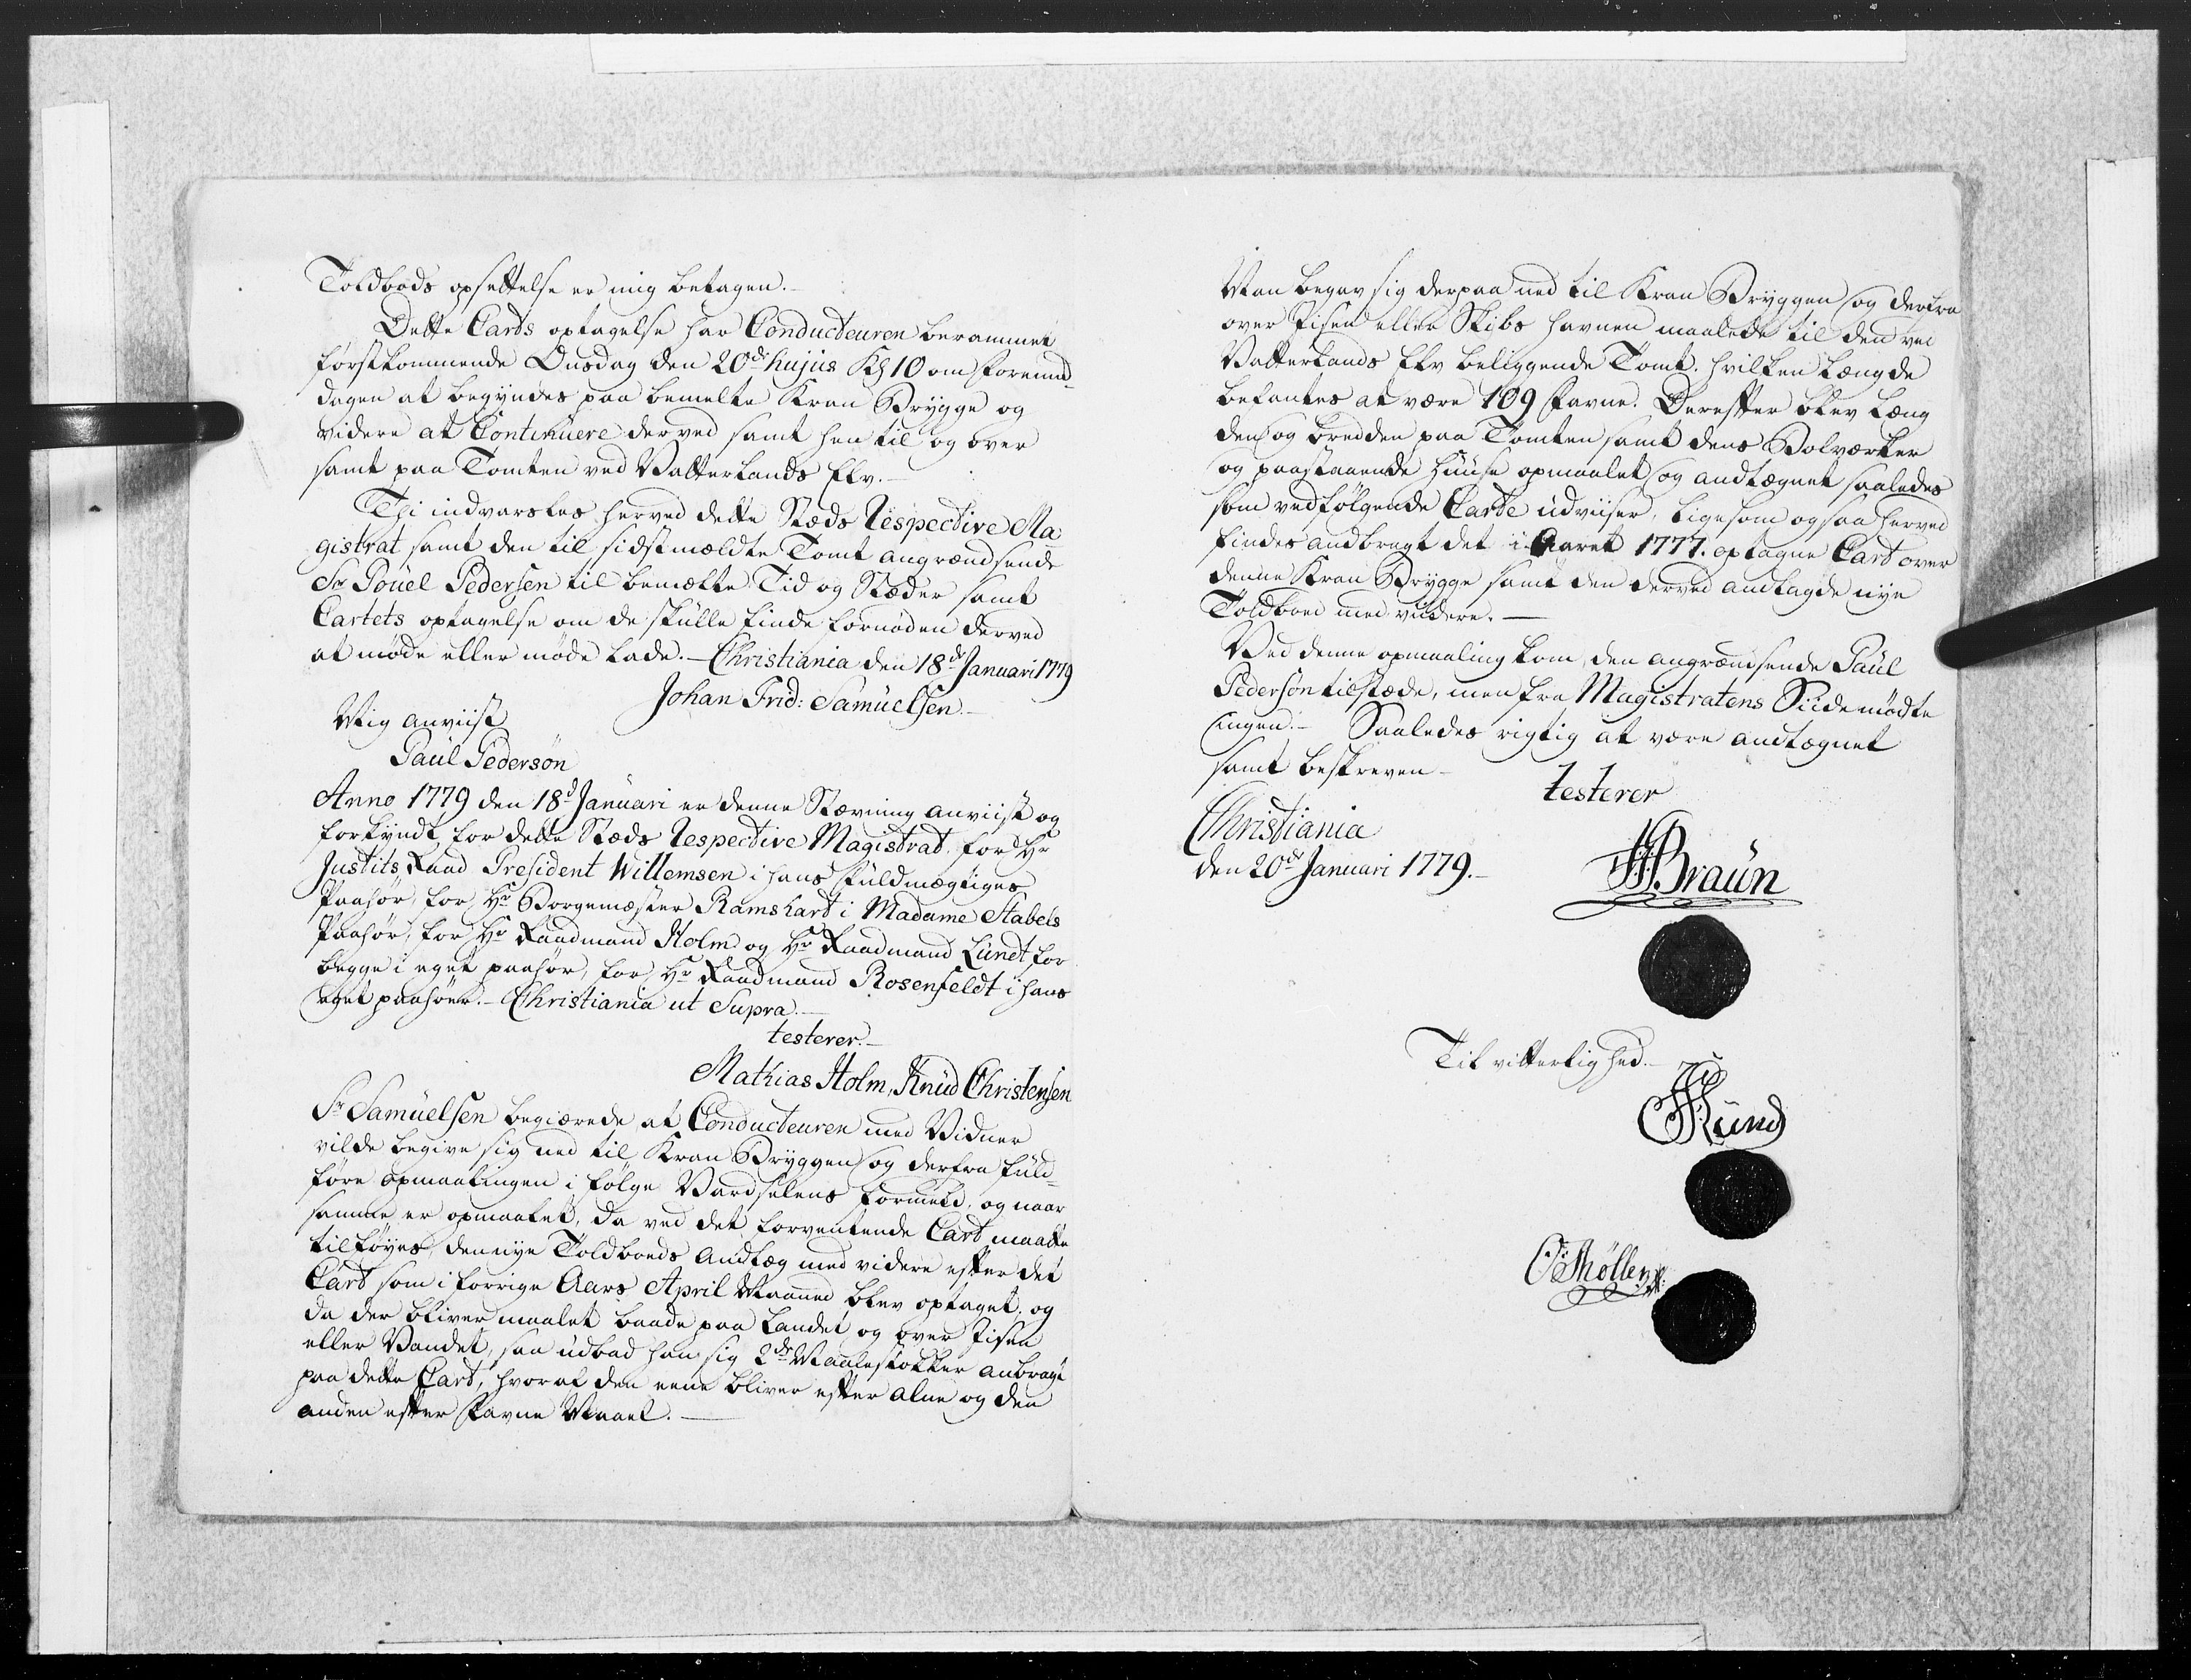 Toldbods opsettelse er mig betagen.-
Dette Carts optagelse har Conducteuren berammet
førstkommende Onsdag den 20de hujus Kl 10 om formid-
dagen at begyndes paa bemelte Kran Brygge og
videre at Continuere derved samt hen til og over
samt paa Tomten ved Vatterlands Elv.-
Thi indvarsles herved dette Stæds respective Ma-
gistrat samt den til sidstmældte Tomt angrændsende
Sr Pouel Pedersen til bemælte Tid og Stæder samt
Cartets optagelse om de skulle finde fornøden derved
at møde eller møde lade.- Christiania den 18de Januari 1779
Johan Frid: Samuelsen.-
Mig anviist
Paul Pedersøn
Anno 1779 den 18d Januari er denne Stævning anviist og
forkyndt for dette Stæds respective Magistrat, for Hr
Justits Raad President Willemsen i hans fuldmægtiges
Paahør, for Hr Borgemæster Ramshart i Madame Stabels
Paahør, for Hr Raadmand Holm og Hr Raadmand Lundt for
begge i eget paahør, for Hr Raadmand Rosenfeldt i hans
eget paahør.- Christiania ut Supra.-
testerer.-
Mathias Holm, Knud Christensen
Sr Samuelsen begiærede at Conducteuren med Vidner
vilde begive sig ned til Kran Bryggen og derfra fuld-
føre opmaalingen i følge Vardselens formeld, og naar
samme er opmaalet, da ved det forventende Cart maatte
tilføyes den nye Toldboeds Andlæg med videre efter det
Cart som i forrige Aars April Maaned blev optaget. og
da der bliver maalet baade paa Landet og over Jisen
eller Vandet, saa udbad han sig 2de Maalestokker anbragt
paa dette Cart, hvoraf den eene bliver efter alne og den
anden efter favne Maal.-
Man begav sig derpaa ned til Kran Bryggen og derfra
over Jisen eller Skibs havnen maalede til den ved
Vatterlands Elv beliggende Tomt. hvilken Længde
befantes at være 109 favne. Derefter blev Læng
den og bredden paa Tomten samt dens Bolværker
og paastaaende Huuse opmaalet og andtægnet saaledes
som vedfølgende Carte udviiser, ligesom ogsaa herved
findes andbragt det i Aaret 1777. optagne Cart over
denne Kran Brygge samt den derved andlagde nye
Toldboed med videre.-
Ved denne opmaaling kom den angrændsende Paul
Pedersøn tilstæde, men fra Magistratens Siide mødte
ingen.- Saaledes rigtig at være andtægnet
samt beskreven-
testerer
Christiania
den 20de Januari 1779.-
Braun
Til vitterlighed.-